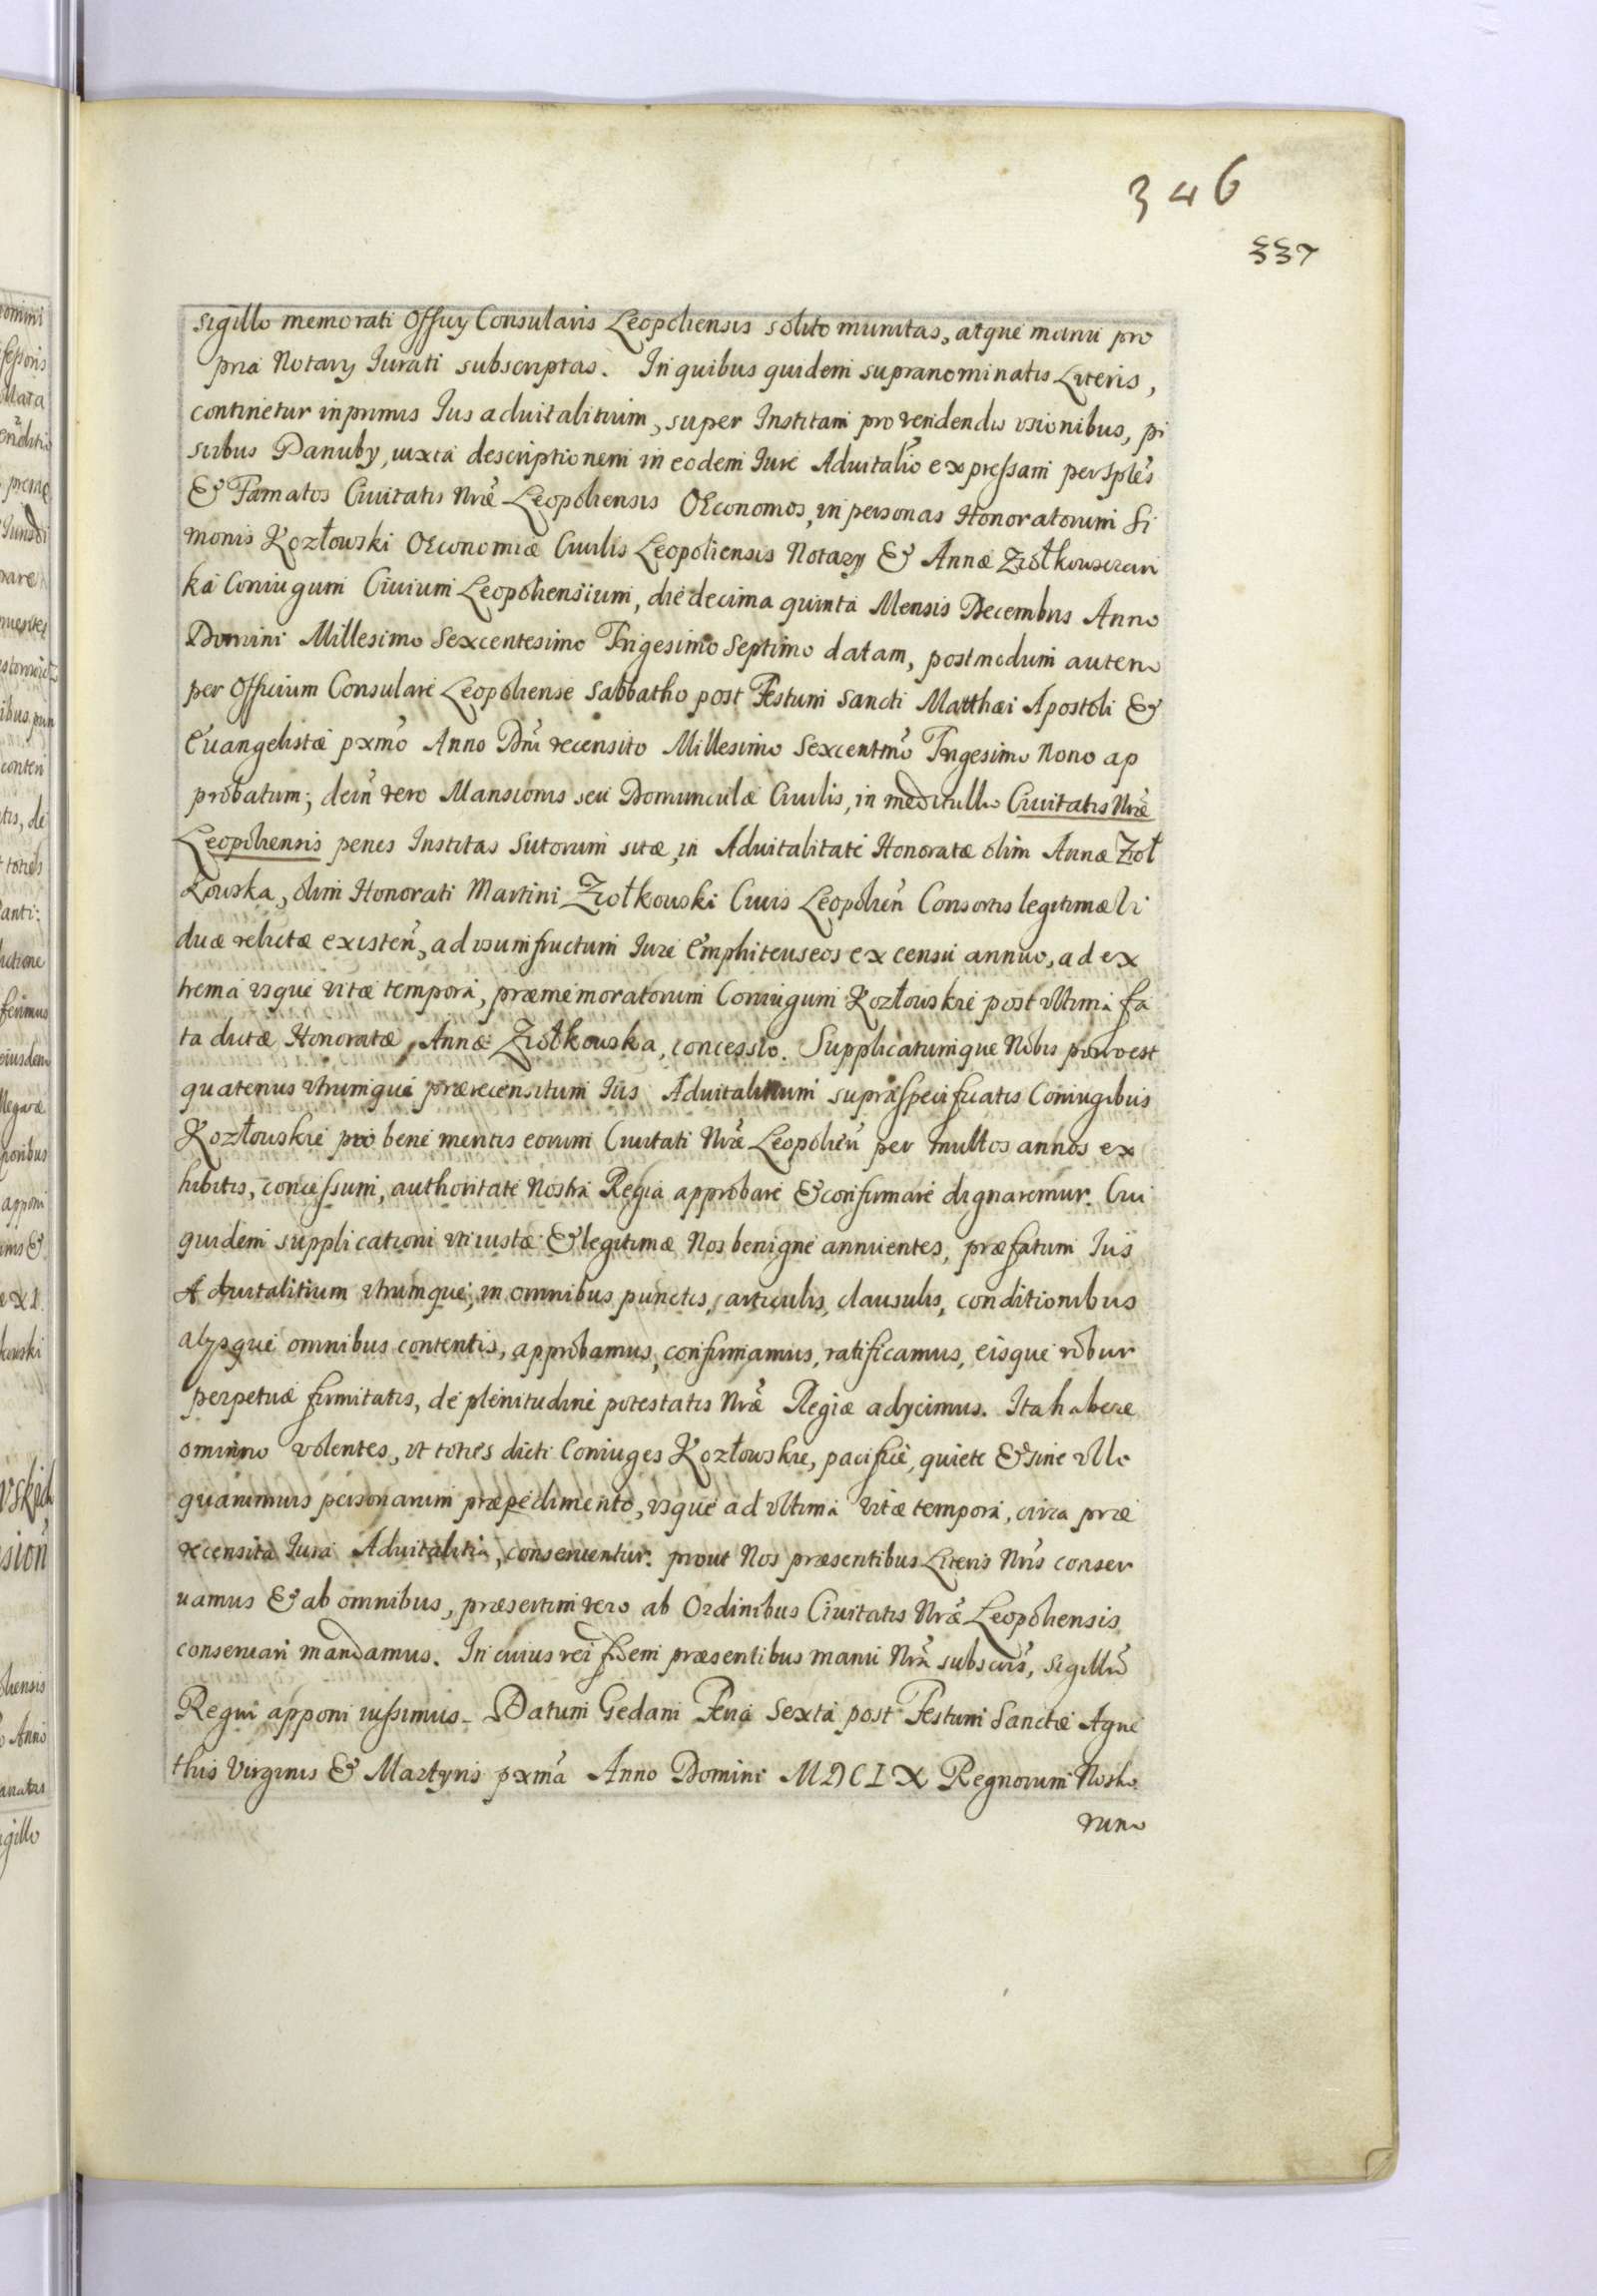 346
337
sigillo memorati Officij Consularis Leopoliensis solito munitas, atque manu pro
pria Notarij Iurati subscriptas. In quibus quidem supranominatis Literis,
continetur inprimis Ius aduitalitium, super Institam pro vendendis
scibus Danubij, iuxta descriptionem in eodem Iure Aduitalio expressam per Sples
& Famatos Ciuitatis Nræ Leopoliensis OEconomos, in personas Honoratorum Si
monis Kozłowski OEconomiæ Ciuilis Leopoliensis Notarij & Annæ
ka Coniugum Ciuium Leopoliensium, die decima quinta Mensis Decembris Anno
Domini Millesimo Sexcentesimo Trigesimo Septimo datam, postmodum autem
per Officium Consulare Leopoliense Sabbatho post Festum Sancti Matthæi Apostoli &
Euangelistæ pxmo Anno Dni recensito Millesimo Sexcentmo Trigesimo Nono ap
probatum; dein vero Mansionis seu Domunculæ Ciuilis, in meditullio Ciuitatis Nræ
Leopoliensis penes Institas Sutorum sitæ, in Aduitalitate Honoratæ olim Annæ Zioł
kowska, olim Honorati Martini Ziołkowski Ciuis Leopolien Consortis legitimæ Vi
duæ relictæ existen, ad vsumfructum Iure Emphiteuseos ex censu annuo, ad ex
trema vsque vitæ tempora, præmemoratorum Coniugum Kozłowskie post vltima fa
ta dictæ Honoratæ Annæ Ziołkowska, concessio. Supplicatumque Nobis porro est
quatenus vtrumque prærecensitum Ius Aduitalitium supraspecificatis Coniugibus
Kozłowskie pro bene meritis eorum Ciuitati Nræ Leopolien per multos annos ex
hibitis, concessum, authoritate Nostra Regia approbare & confirmare dignaremur. Cui
quidem supplicationi vti iustæ & legitimæ Nos benigne annuentes, præfatum Ius
Aduitalitium vtrumque, in omnibus punctis, articulis, clausulis, conditionibus
alijsque omnibus contentis, approbamus, confirmamus, ratificamus, eisque robur
perpetuæ firmitatis, de plenitudine potestatis Nræ Regiæ adijcimus. Ita habere
omnino volentes, vt toties dicti Coniuges Kozłowskie, pacifice, quiete & sine vllo
quarumuis personarum præpedimento, vsque ad vltima vitæ tempora, circa præ
recensita Iura Aduitalitia, conseruentur. prout Nos præsentibus Literis Nris conser
uamus & ab omnibus, præsertim vero ab Ordinibus Ciuitatis Nræ Leopoliensis
conseruari mandamus. In cuius rei fidem præsentibus manu Nra subscris, sigillu
Regni apponi iussimus. Datum Gedani Feria Sexta post Festum Sanctæ Agne
this Virginis & Martyris pxma Anno Domini MDCLX Regnorum Nostro
rum